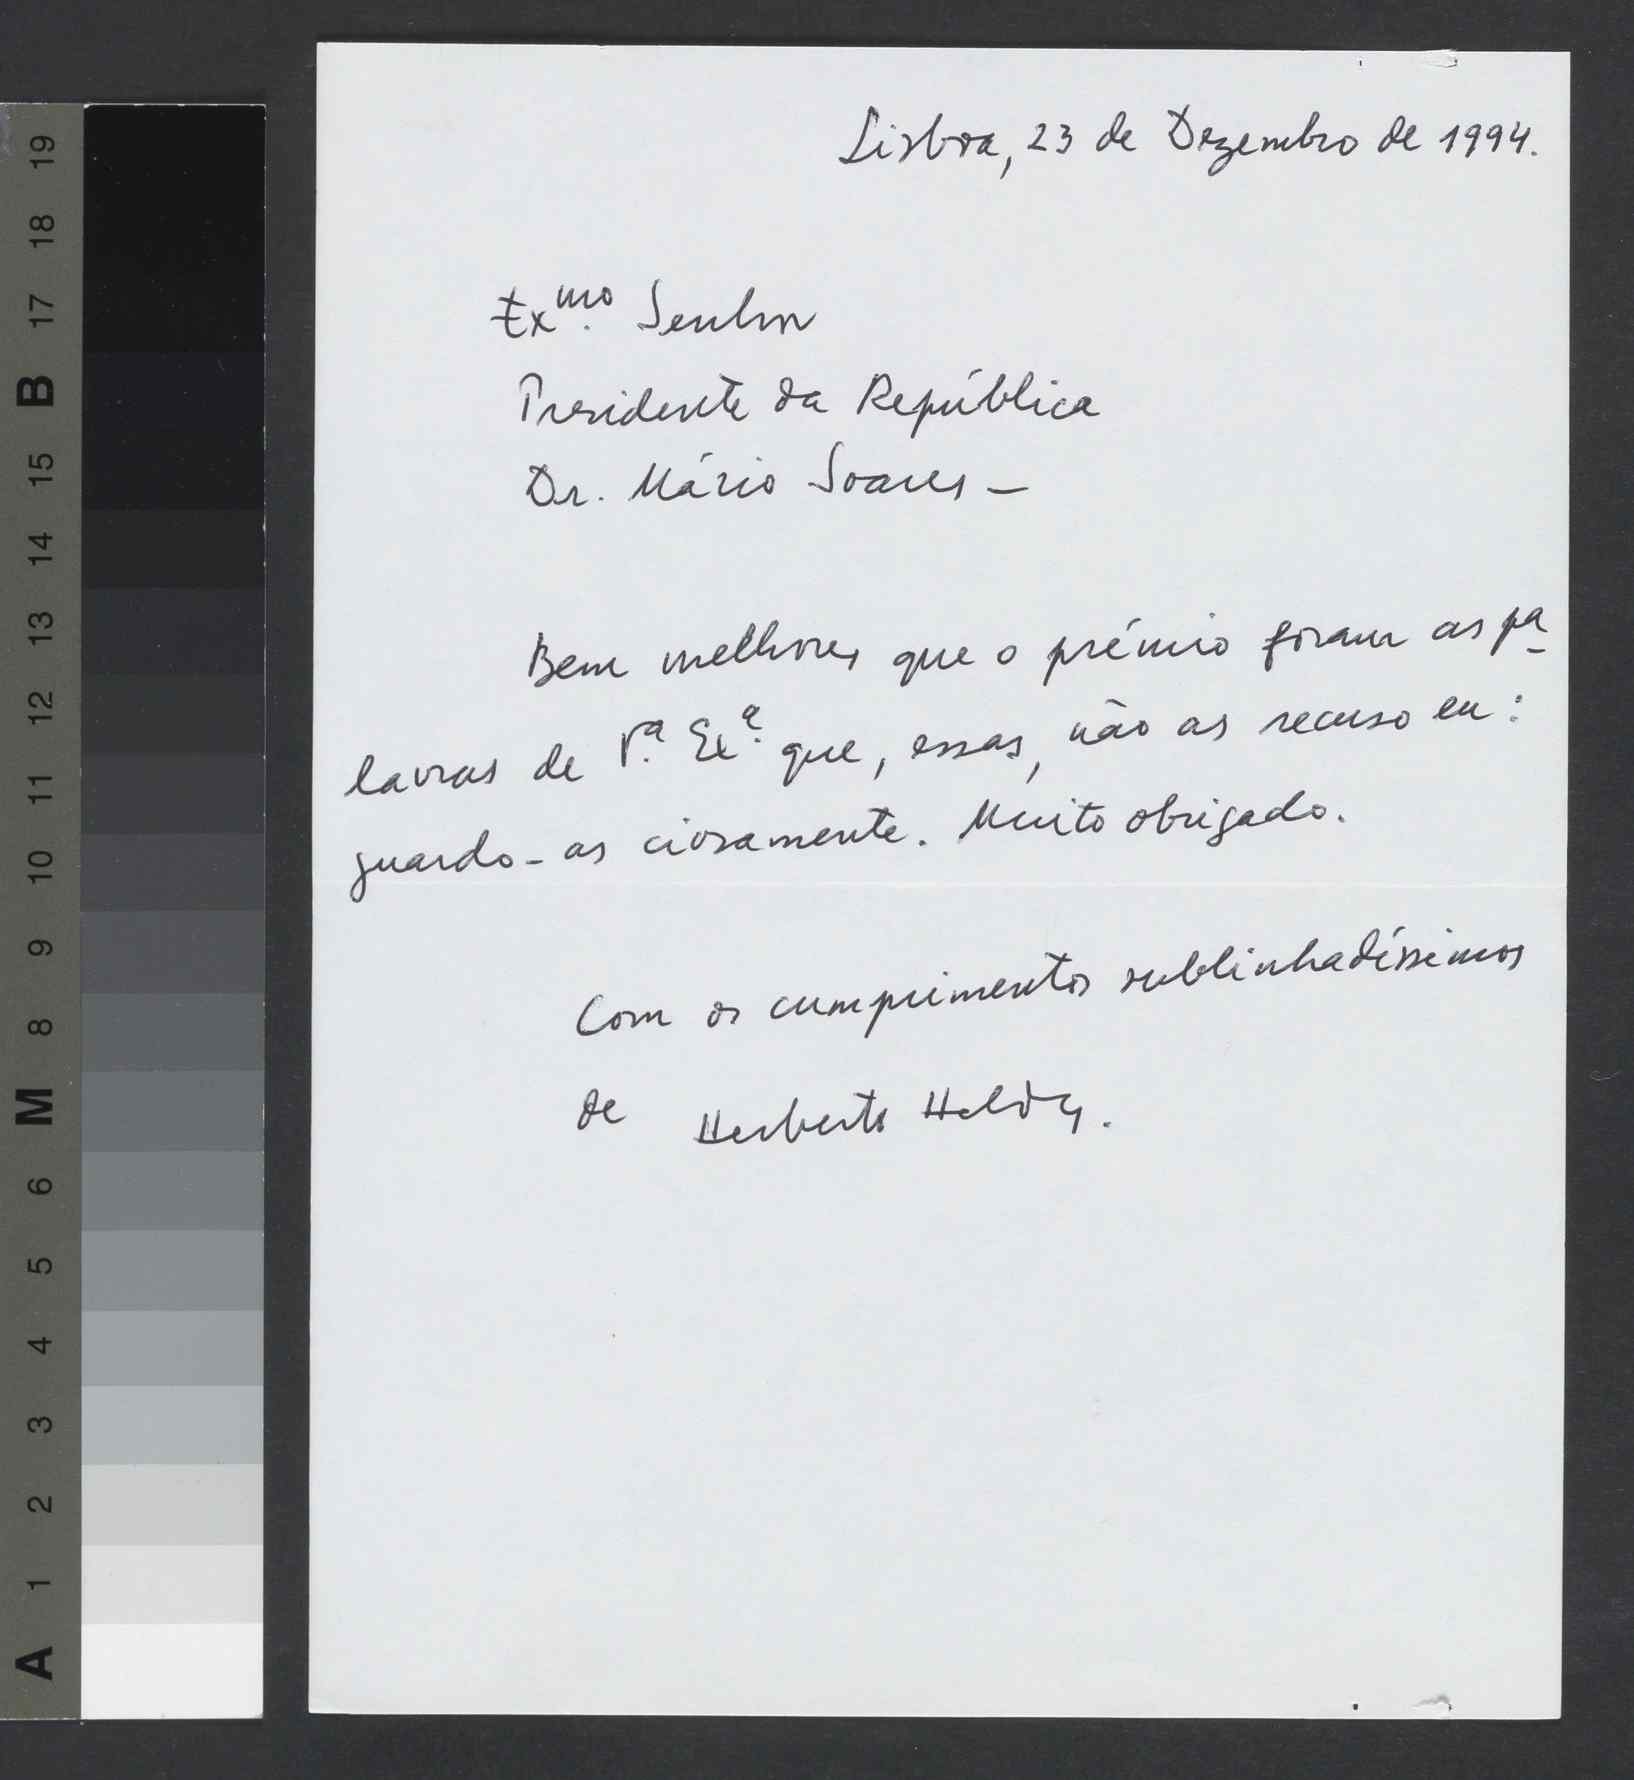 Lisboa, 23 de Dezembro de 1994.
Ex.mo Senhor
Presidente da República
Dr. Mário Soares –
Bem melhores que o prémio foram as pa-
lavras de V.ª Ex.ª que, essas, não as recuso eu:
guardo-as ciosamente. Muito obrigado.
Com os cumprimentos sublinhadíssimos
de Herberto Helder.
A 1 2 3 4 5 6 M 8 9 10 11 12 13 14 15 B 17 18 19